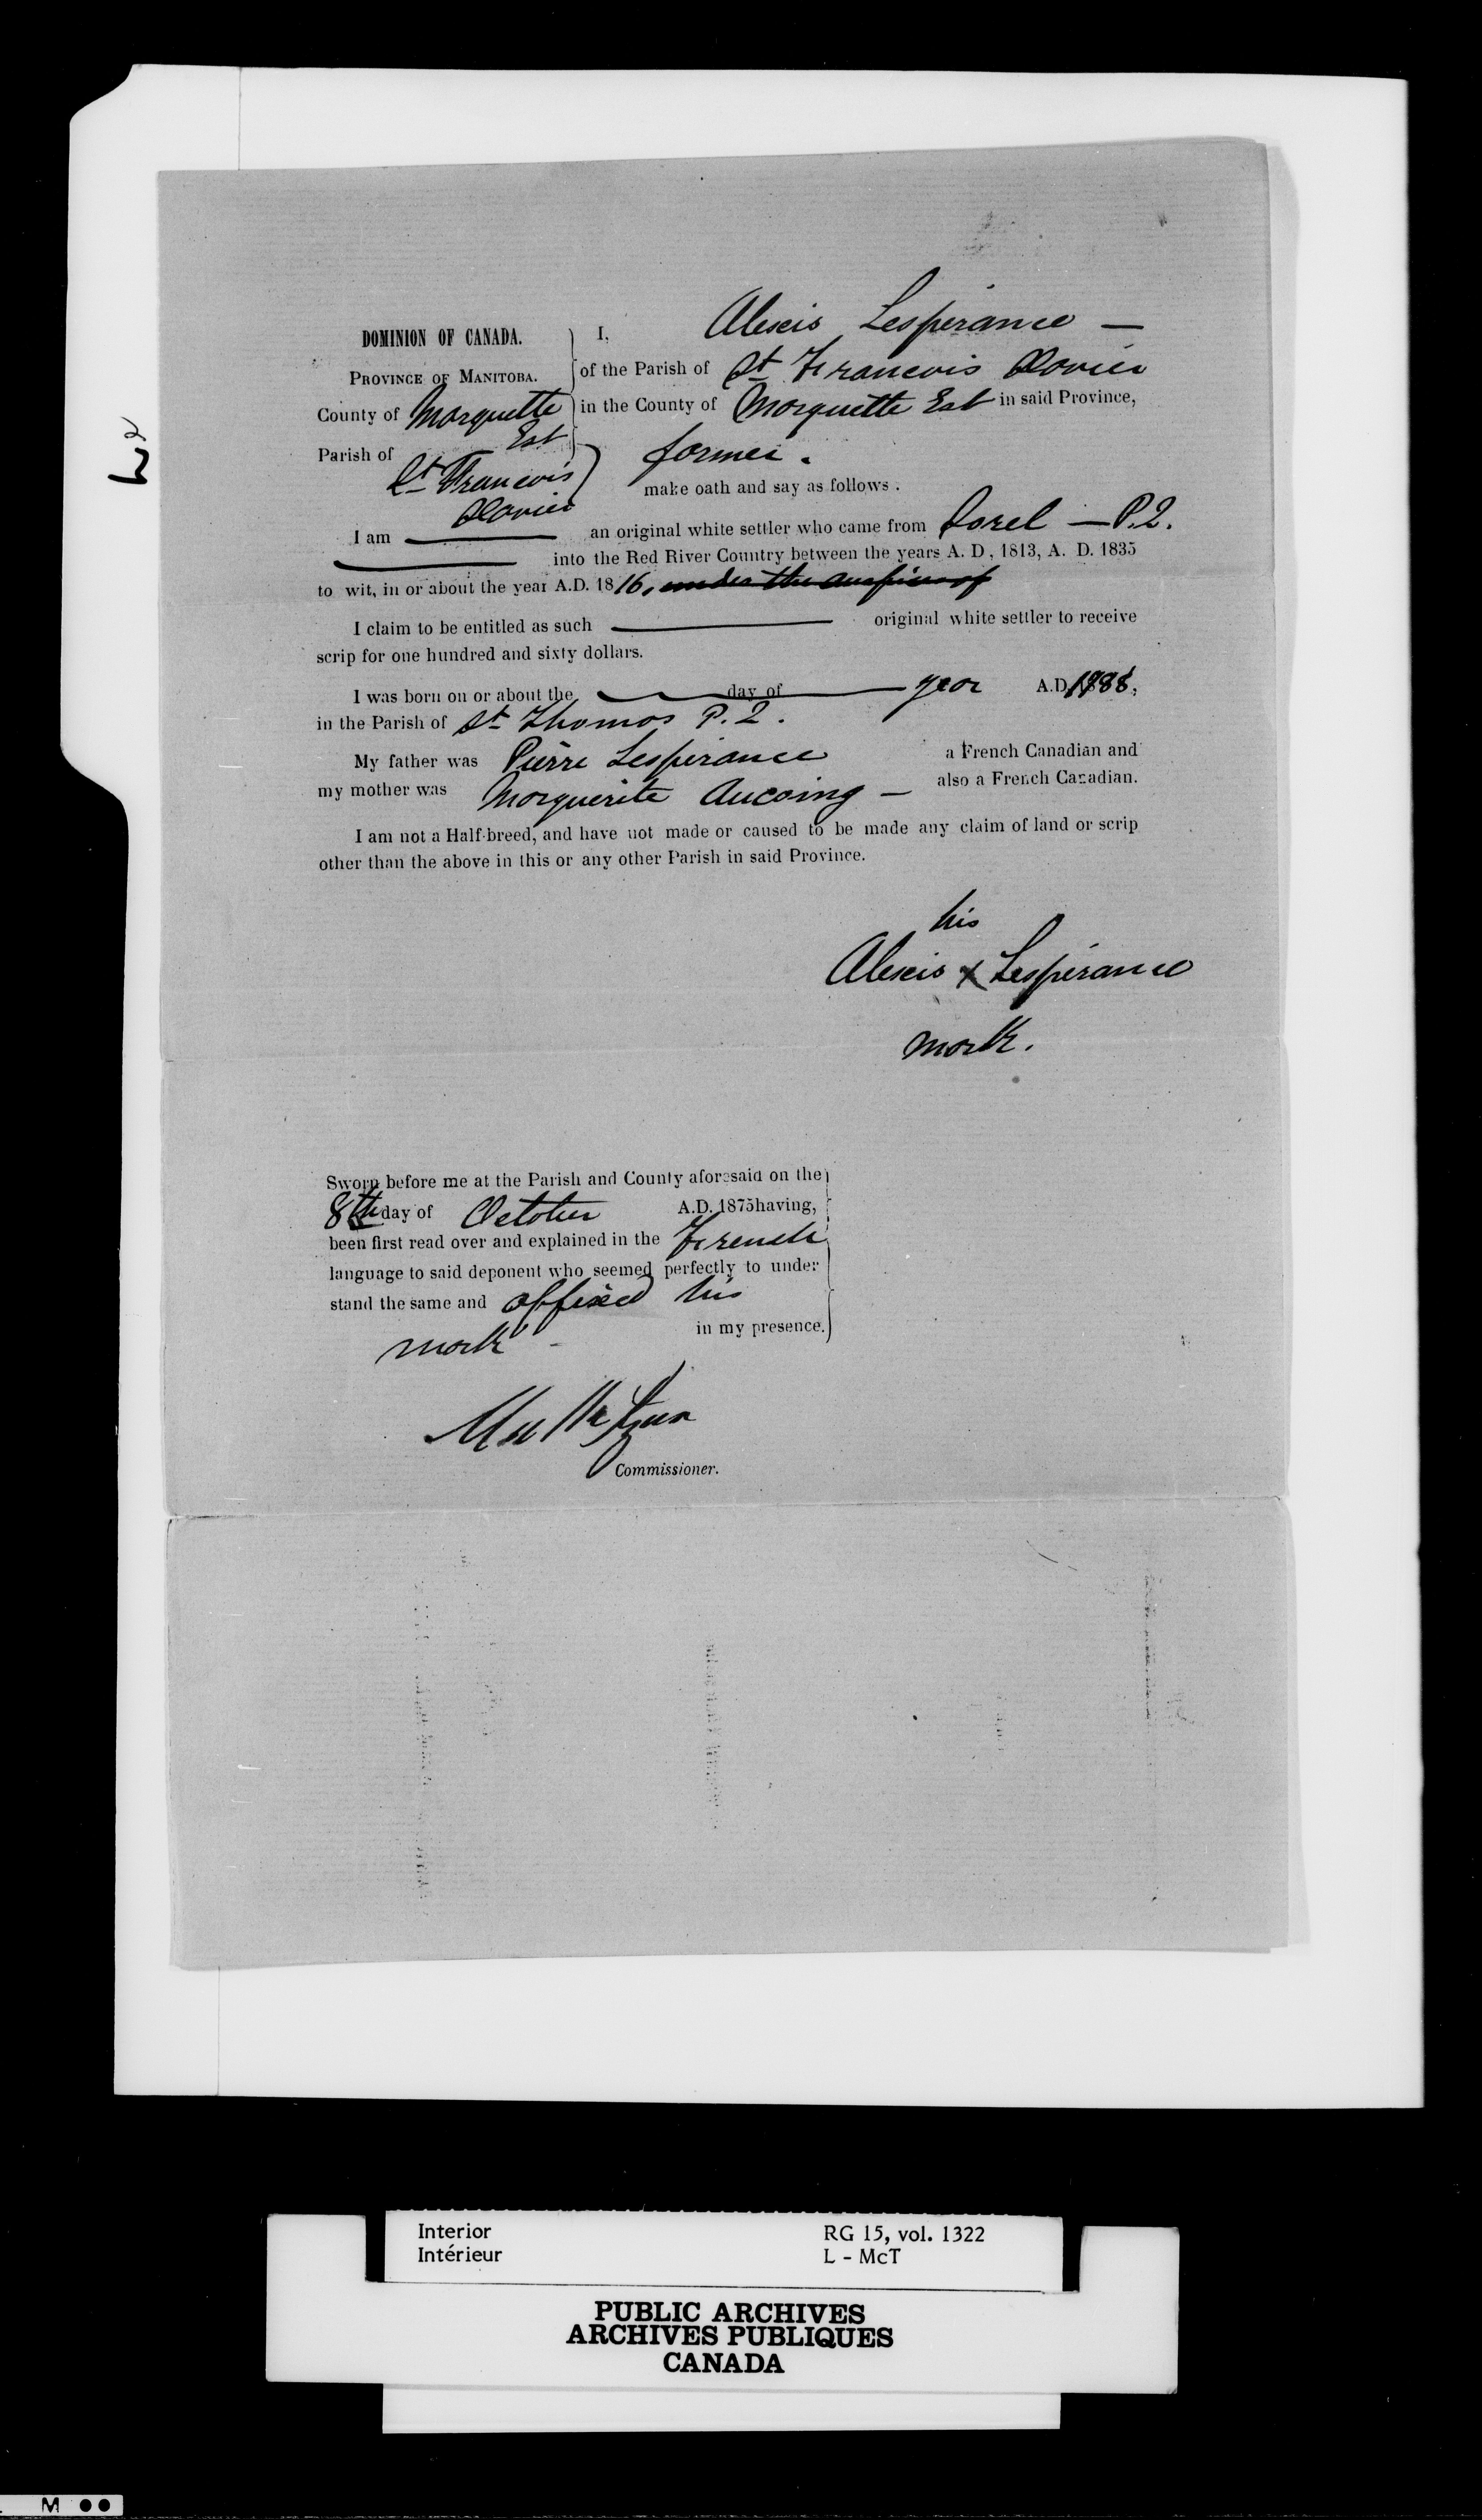 DOMINION OF CANADA.
PROVINCE OF MANITOBA.
County of Marquette Est
Parish of St Francois Xavier
I, Alexis Lesperance —
of the Parish of St Francois Xavier
in the County of Marquette Est in said Province,
farmer.
make oath and say as follows:
I am — an original white settler who came from Sorel — P.Q.
into the Red River Country between the years A. D, 1813, A. D. 1835
to wit, in or about the year A.D. 1816, under the auspices of
I claim to be entitled as such — original white settler to receive
scrip for one hundred and sixty dollars.
I was born on or about the — day of — year A.D.
in the Parish of St Thomas P.Q.
My father was Pierre Lesperance a French Canadian and
my mother was Marguerite Aucoing — also a French Canadian.
I am not a Half-breed, and have not made or caused to be made any claim of land or scrip
other than the above in this or any other Parish in said Province.
his
Alexis X Lesperance
mark.
Sworn before me at the Parish and County aforesaid on the
8th day of October A.D. 1875 having,
been first read over and explained in the French
language to said deponent who seemed perfectly to under
stand the same and affixed his
mark - in my presence.
Commissioner.
Interior
Intérieur
RG 15, vol. 1322
L - McT
PUBLIC ARCHIVES
ARCHIVES PUBLIQUES
CANADA
M